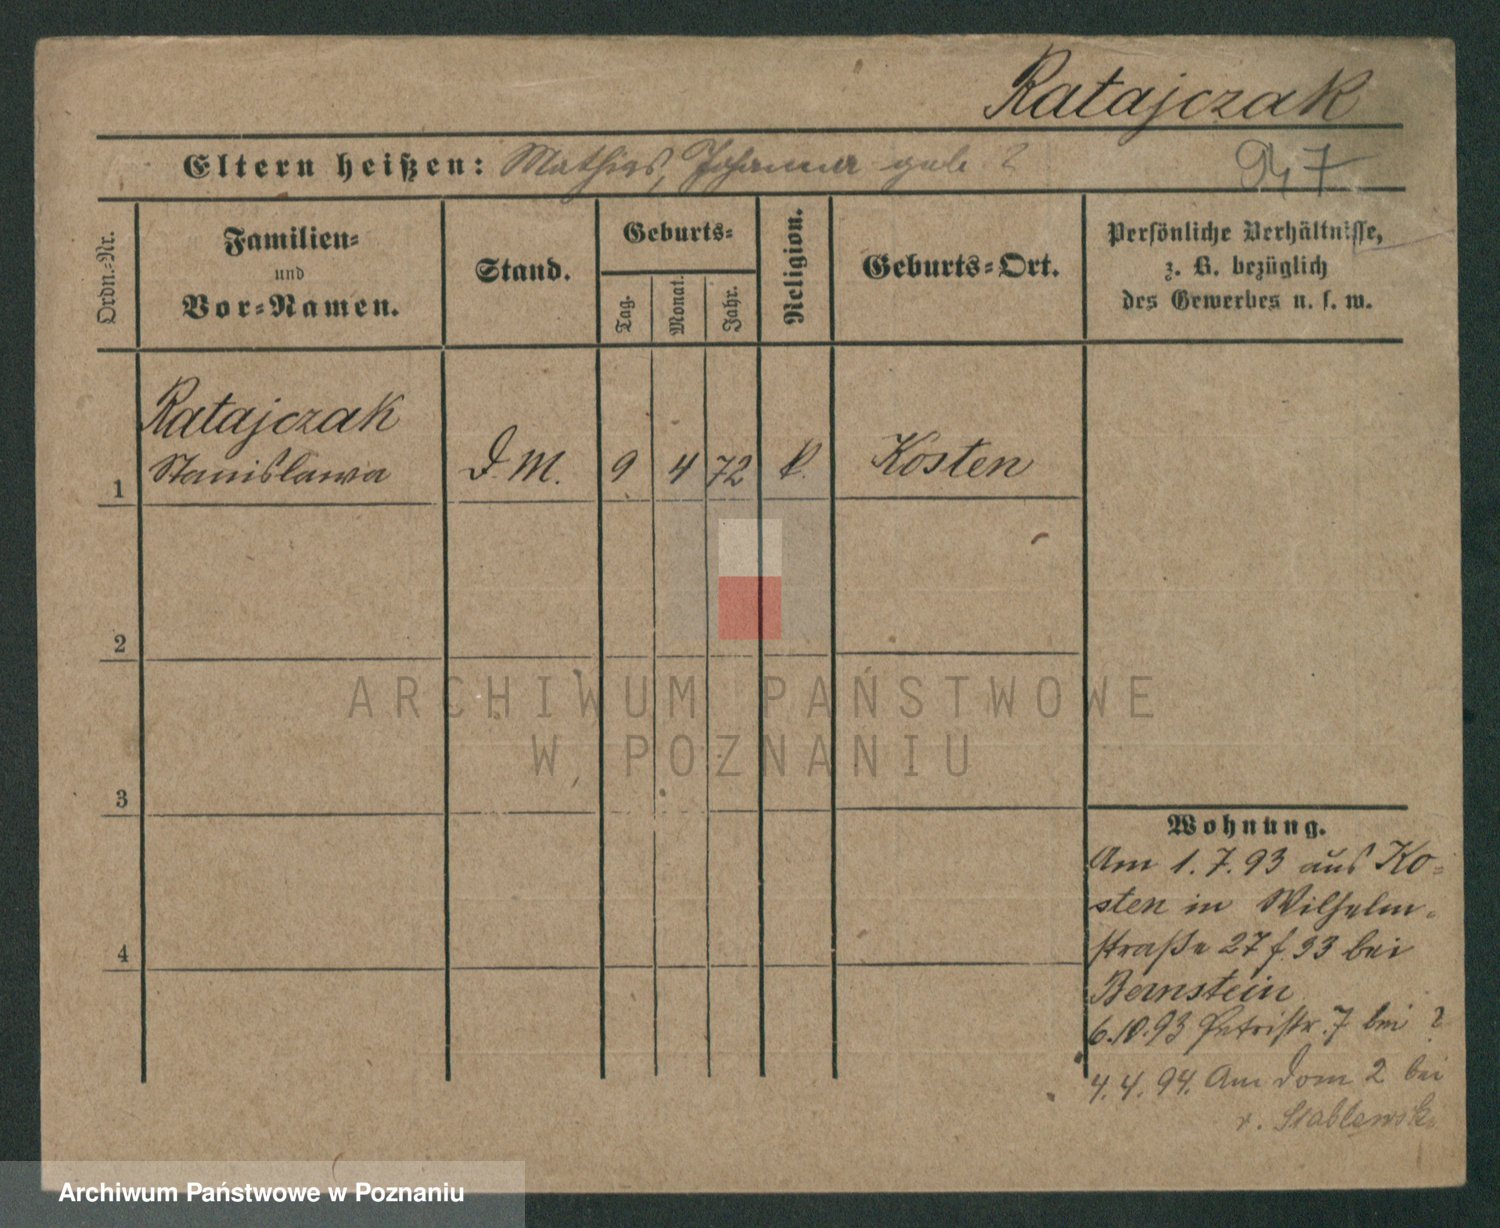 Ratajczak
Eltern heißen: Mathias, Johanna geb. ?
Ordn.-Nr.
Familien-
und
Vor-Namen.
Stand.
Geburts-
Tag.
Monat.
Jahr.
Religion.
Geburts-Ort.
Persönliche Verhältnisse,
z. B. bezüglich
des Gewerbes u. s. w.
Ratajczak
1 Stanislawa D. M. 9 4 72 k. Kosten
2
3
4
ARCHIWUM PAŃSTWOWE
W POZNANIU
Wohnung.
Am 1.7.93 aus Ko-
sten in Wilhelm-
straße 27 f. 93 bei
Bernstein
6.10.93 Petristr. 7 bei ?
4.4.94. Am Dom 2 bei
v. Stablewski
Archiwum Państwowe w Poznaniu